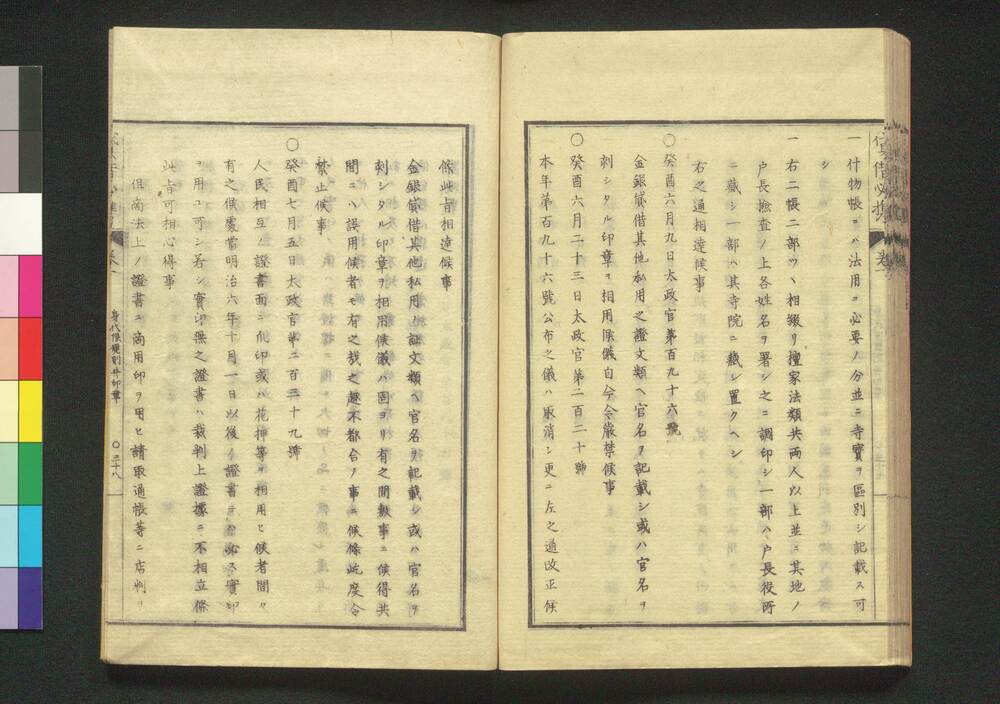 貸借必携 卷一
一什物帳ニハ法用ニ必要ノ分並ニ寺寳ヲ區別シ記載ス可
シ
一右二帳二部ツヽ相綴リ檀家法類共兩人以上並ニ其地ノ
戸長撿査ノ上各姓名ヲ署シ之ニ調印シ一部ハ戸長役所
ニ藏シ一部ハ其寺院ニ藏シ置クヘシ
右之通相達候事
〇癸酉六月九日太政官第百九十六號
金銀貸借其他私用之證文類ヘ官名ヲ記載シ或ハ官名ヲ
刻シタル印章ヲ相用候儀自今令嚴禁候事
〇癸酉六月二十三日太政官第二百二十號
本年第百九十六號公布之儀ハ取消シ更ニ左之通改正候
條此旨相達候事
金銀貸借其他私用ノ証文類ヘ官名ヲ記載シ或ハ官名ヲ
刻シタル印章ヲ相用候儀ハ固ヨリ有之間敷事ニ候得共
間ニハ誤用候者モ有之哉之趣不都合ノ事ニ候條屹度令
禁止候事
〇癸酉七月五日太政官第二百三十九號
人民相互ノ證書面ニ爪印或ハ花押等ヲ相用ヒ候者間々
有之候處當明治六年十月一日以後ノ證書ニハ必ス實印
ヲ用ユ可シ若シ實印無之證書ハ裁判上證據ニ不相立條
此旨可相心得事
但商法上ノ證書ニ商用印ヲ用ヒ請取通帳等ニ店判ヲ
卷一 身代限規則并印章 〇三十八